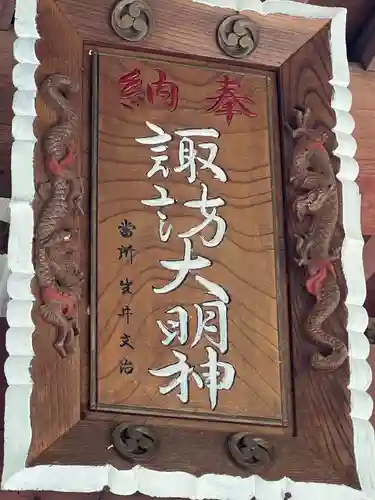 奉納
諏訪大明神
當所 井文治